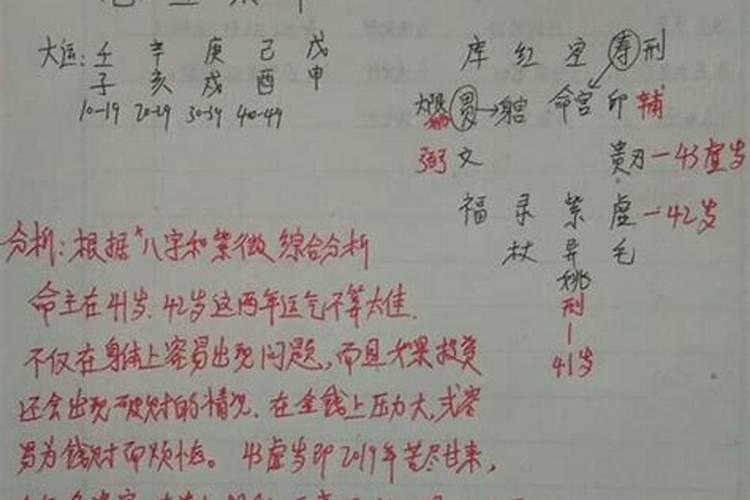 大运: 壬 辛 庚 己 戊
子 亥 戌 酉 申
10-19 20-29 30-39 40-49
库 红 空 寿 刑
大限 贯→ 命宫 印 辅
弼 文 贵刃-43虚岁
福 录 紫 虚-42岁
杖 异 毛
姚
刑
41岁
分析: 根据"八字和紫微综合分析
命主在41岁、42岁这两年运气不算太佳.
不仅在身体上容易出现问题,而且如果投资
还会出现破财的情况、在金钱上压力大,或容
易为钱财而烦恼。43虚岁即2019年苦尽甘来,